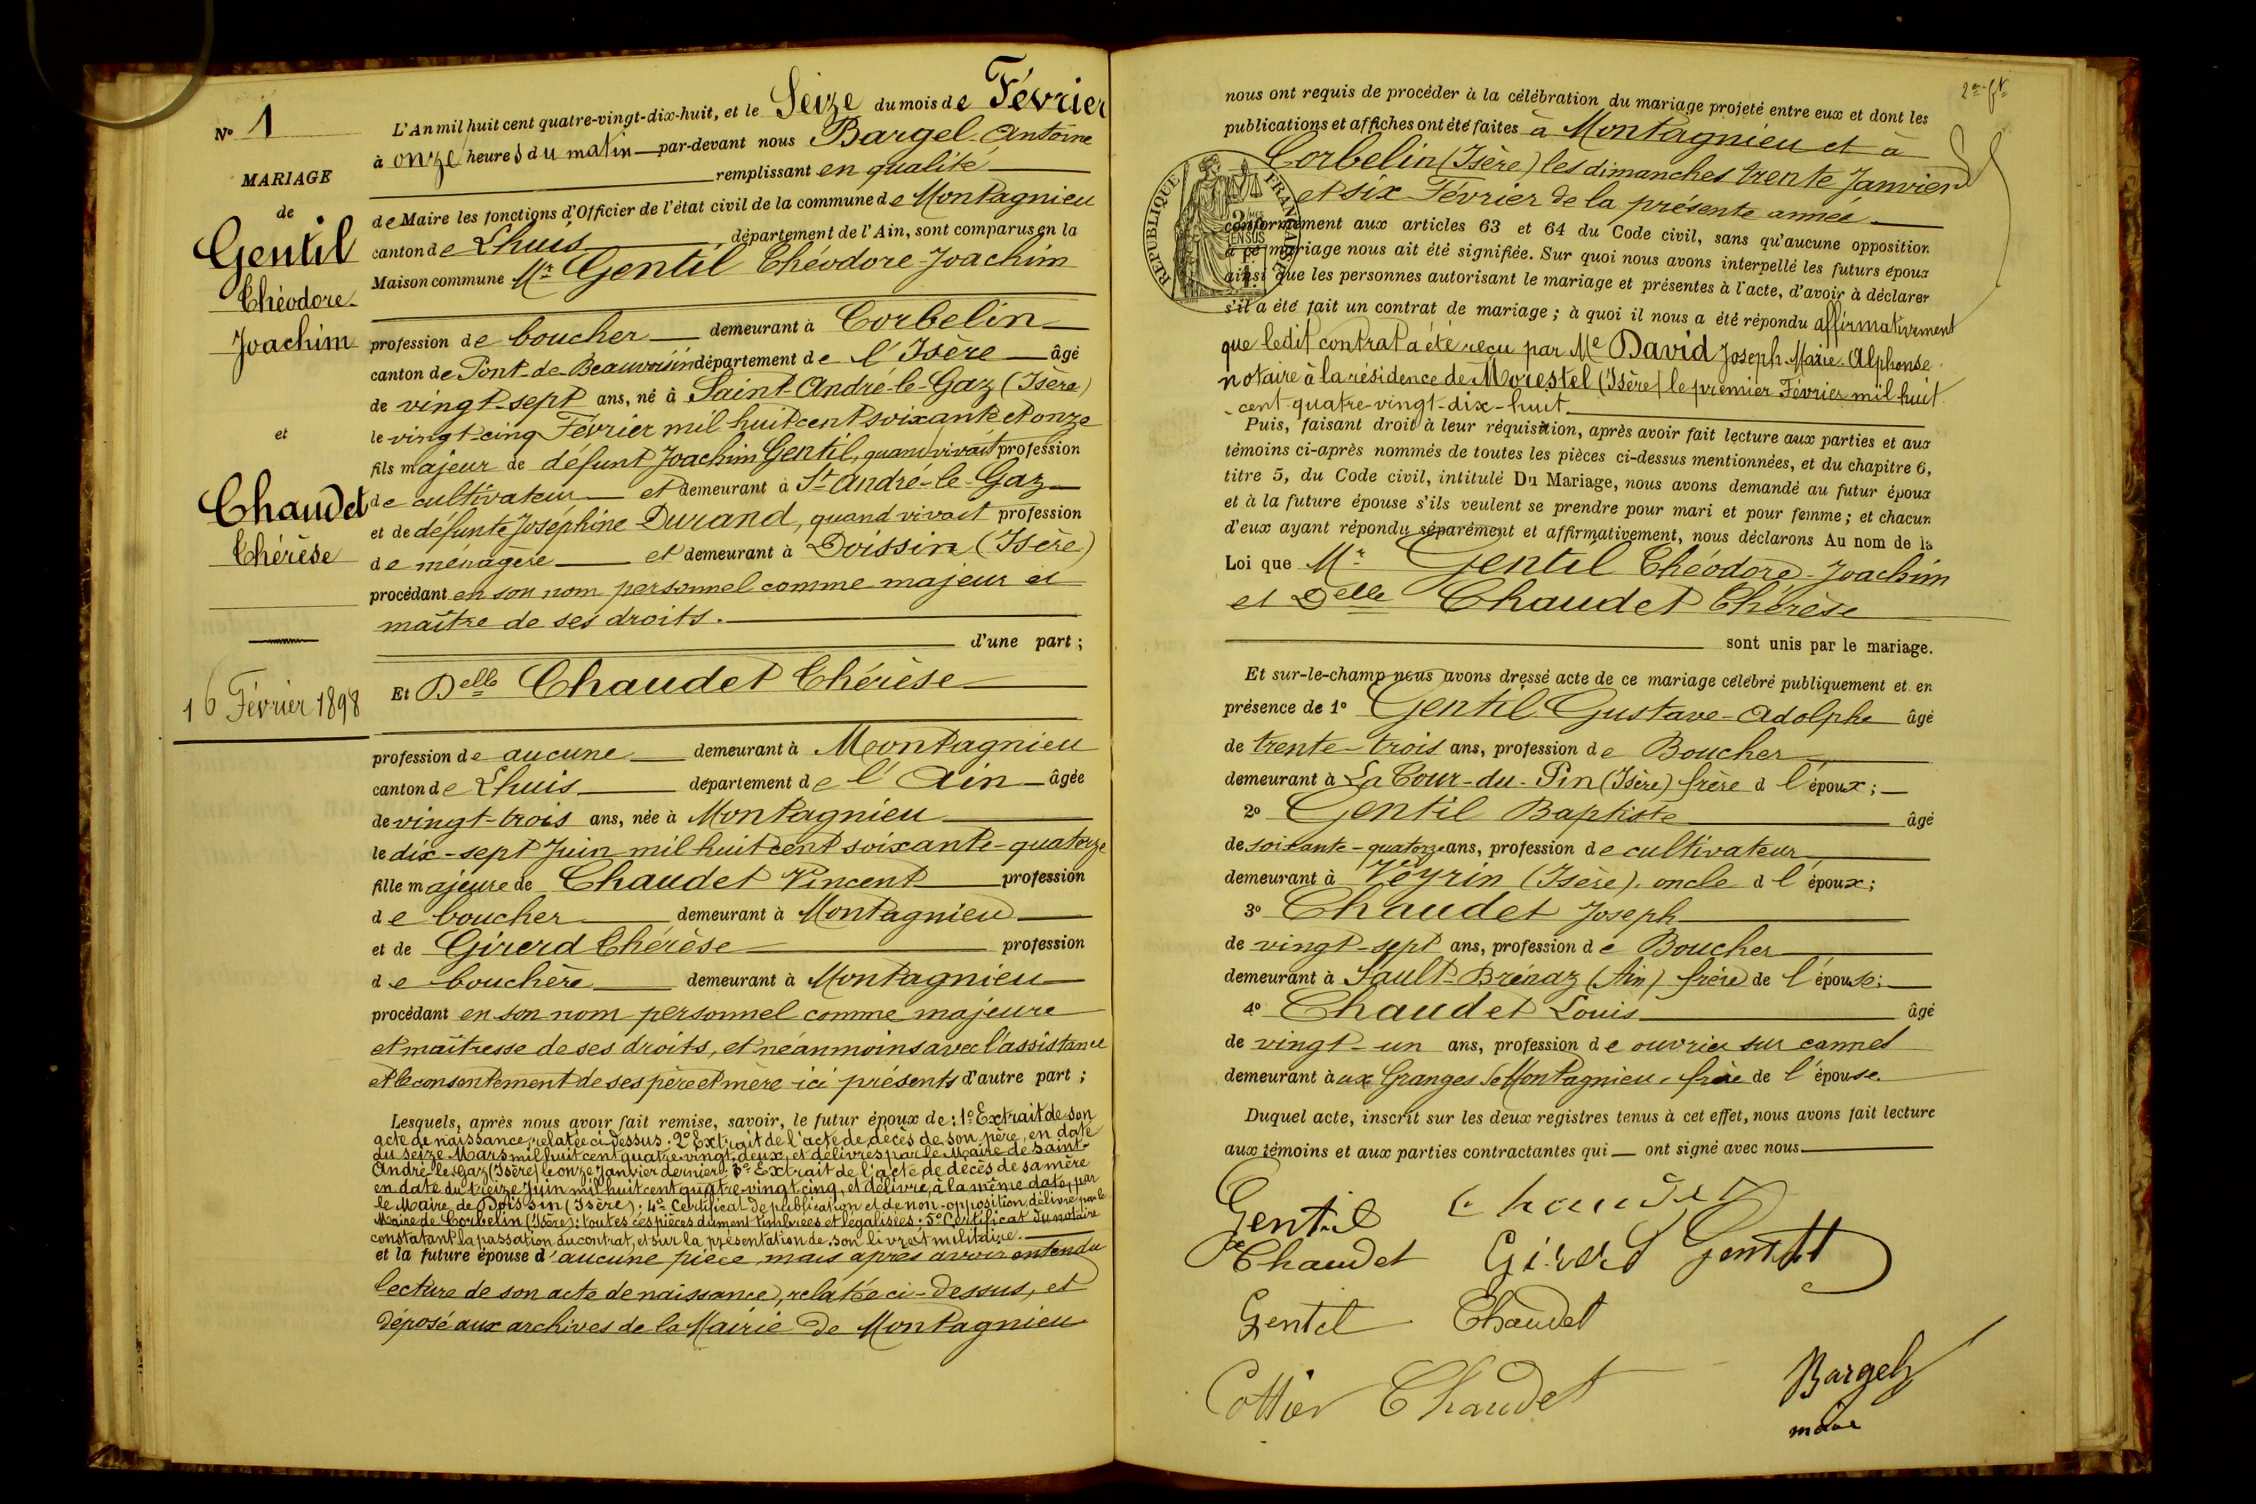 N° 1
MARIAGE
de
Gentil
Théodore-
Joachim
et
Chaudet
Thérèse
16 Février 1898
L'An mil huit cent quatre-vingt-dix-huit, et le Seize du mois de Février
à onze heures du matin par-devant nous Bargel Antoine
remplissant en qualité
de Maire les fonctions d'Officier de l'état civil de la commune de Montagnieu
canton de Lhuis département de l'Ain, sont comparus en la
Maison commune Mr Gentil Théodore-Joachim
profession de boucher demeurant à Corbelin
canton de Pont-de-Beauvoisin département de l'Isère âgé
de vingt-sept ans, né à Saint-André-le-Gaz (Isère)
le vingt-cinq Février mil huit cent soixante et onze
fils majeur de défunt Joachim Gentil, quand vivait profession
de cultivateur et demeurant à St André-le-Gaz
et de défunte Joséphine Durand, quand vivait profession
de ménagère et demeurant à Doissin (Isère)
procédant en son nom personnel comme majeur et
maître de ses droits.
d'une part ;
Et Delle Chaudet Thérèse
profession de aucune demeurant à Montagnieu
canton de Lhuis département de l'Ain âgée
de vingt-trois ans, née à Montagnieu
le dix-sept Juin mil huit cent soixante-quatorze
fille majeure de Chaudet Vincent profession
de boucher demeurant à Montagnieu
et de Girerd Thérèse profession
de bouchère demeurant à Montagnieu
procédant en son nom personnel comme majeure
et maîtresse de ses droits, et néanmoins avec l'assistance
et le consentement de ses père et mère ici présents d'autre part ;
Lesquels, après nous avoir fait remise, savoir, le futur époux de : 1° Extrait de son
acte de naissance, relatée ci-dessus. 2° Extrait de l'acte de décès de son père, en date
du seize Mars mil huit cent quatre-vingt-deux, et délivrés par le Maire de Saint-
André-le-Gaz (Isère) le onze Janvier dernier. 3° Extrait de l'acte de décès de sa mère
en date du treize Juin mil huit cent quatre-vingt-cinq, et délivré, à la même date, par
le Maire de Doissin (Isère) ; 4° Certificat de publication et de non-opposition, délivré par le
Maire de Corbelin (Isère) : toutes ces pièces dûment timbrées et légalisées ; 5° Certificat du notaire
constatant la passation du contrat, et sur la présentation de son livret militaire.
et la future épouse d'aucune pièce, mais après avoir entendu
lecture de son acte de naissance, relatée ci-dessus, et
déposé aux archives de la Mairie de Montagnieu
nous ont requis de procéder à la célébration du mariage projeté entre eux et dont les
publications et affiches ont été faites à Montagnieu et à
Corbelin (Isère) les dimanches trente Janvier
et six Février de la présente année
conformément aux articles 63 et 64 du Code civil, sans qu'aucune opposition
à ce mariage nous ait été signifiée. Sur quoi nous avons interpellé les futurs époux
ainsi que les personnes autorisant le mariage et présentes à l'acte, d'avoir à déclarer
s'il a été fait un contrat de mariage ; à quoi il nous a été répondu affirmativement
que ledit contrat a été reçu par Me David Joseph-Marie-Alphonse
notaire à la résidence de Morestel (Isère) le premier Février mil huit
cent quatre-vingt-dix-huit
RÉPUBLIQUE FRANÇAISE
Puis, faisant droit à leur réquisition, après avoir fait lecture aux parties et aux
témoins ci-après nommés de toutes les pièces ci-dessus mentionnées, et du chapitre 6,
titre 5, du Code civil, intitulé Du Mariage, nous avons demandé au futur époux
et à la future épouse s'ils veulent se prendre pour mari et pour femme ; et chacun
d'eux ayant répondu séparément et affirmativement, nous déclarons Au nom de la
Loi que Mr Gentil Théodore-Joachim
et Delle Chaudet Thérèse
sont unis par le mariage.
Et sur-le-champ nous avons dressé acte de ce mariage célébré publiquement et en
présence de 1° Gentil Gustave-Adolphe âgé
de trente-trois ans, profession de Boucher
demeurant à La Tour-du-Pin (Isère) frère d l'époux ;
2° Gentil Baptiste âgé
de soixante-quatorze ans, profession de cultivateur
demeurant à Veyrin (Isère), oncle d l'époux ;
3° Chaudet Joseph
de vingt-sept ans, profession de Boucher
demeurant à Sault-Brénaz (Ain) frère de l'épouse ;
4° Chaudet Louis âgé
de vingt-un ans, profession de ouvrier sur cannes
demeurant à aux Granges de Montagnieu, frère de l'épouse.
Duquel acte, inscrit sur les deux registres tenus à cet effet, nous avons fait lecture
aux témoins et aux parties contractantes qui ont signé avec nous
Gentil Chaudet
Chaudet Girerd Gentil
Gentil Chaudet
Cottier Chaudet
Bargel
maire